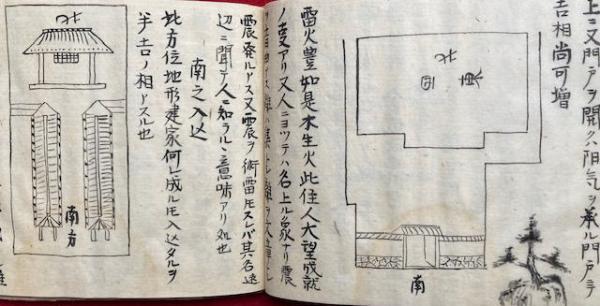 上ニ又門戸ヲ開クハ陽気ヲ承ル門戸ヲ
吉相尚可増
北
南
雷火豊如是木生火此住人大望成就
ノ変アリ又人ニヨツテハ名上ル象ナリ震
震発ルトス又震ヲ術雷モスレバ其名遠
辺ニ聞テ人ニ知ラルヽ意味アリ処也
南之入込
此方位地形建家何レ成ルモ入込タルヲ
半吉ノ相トスル也
北
南方